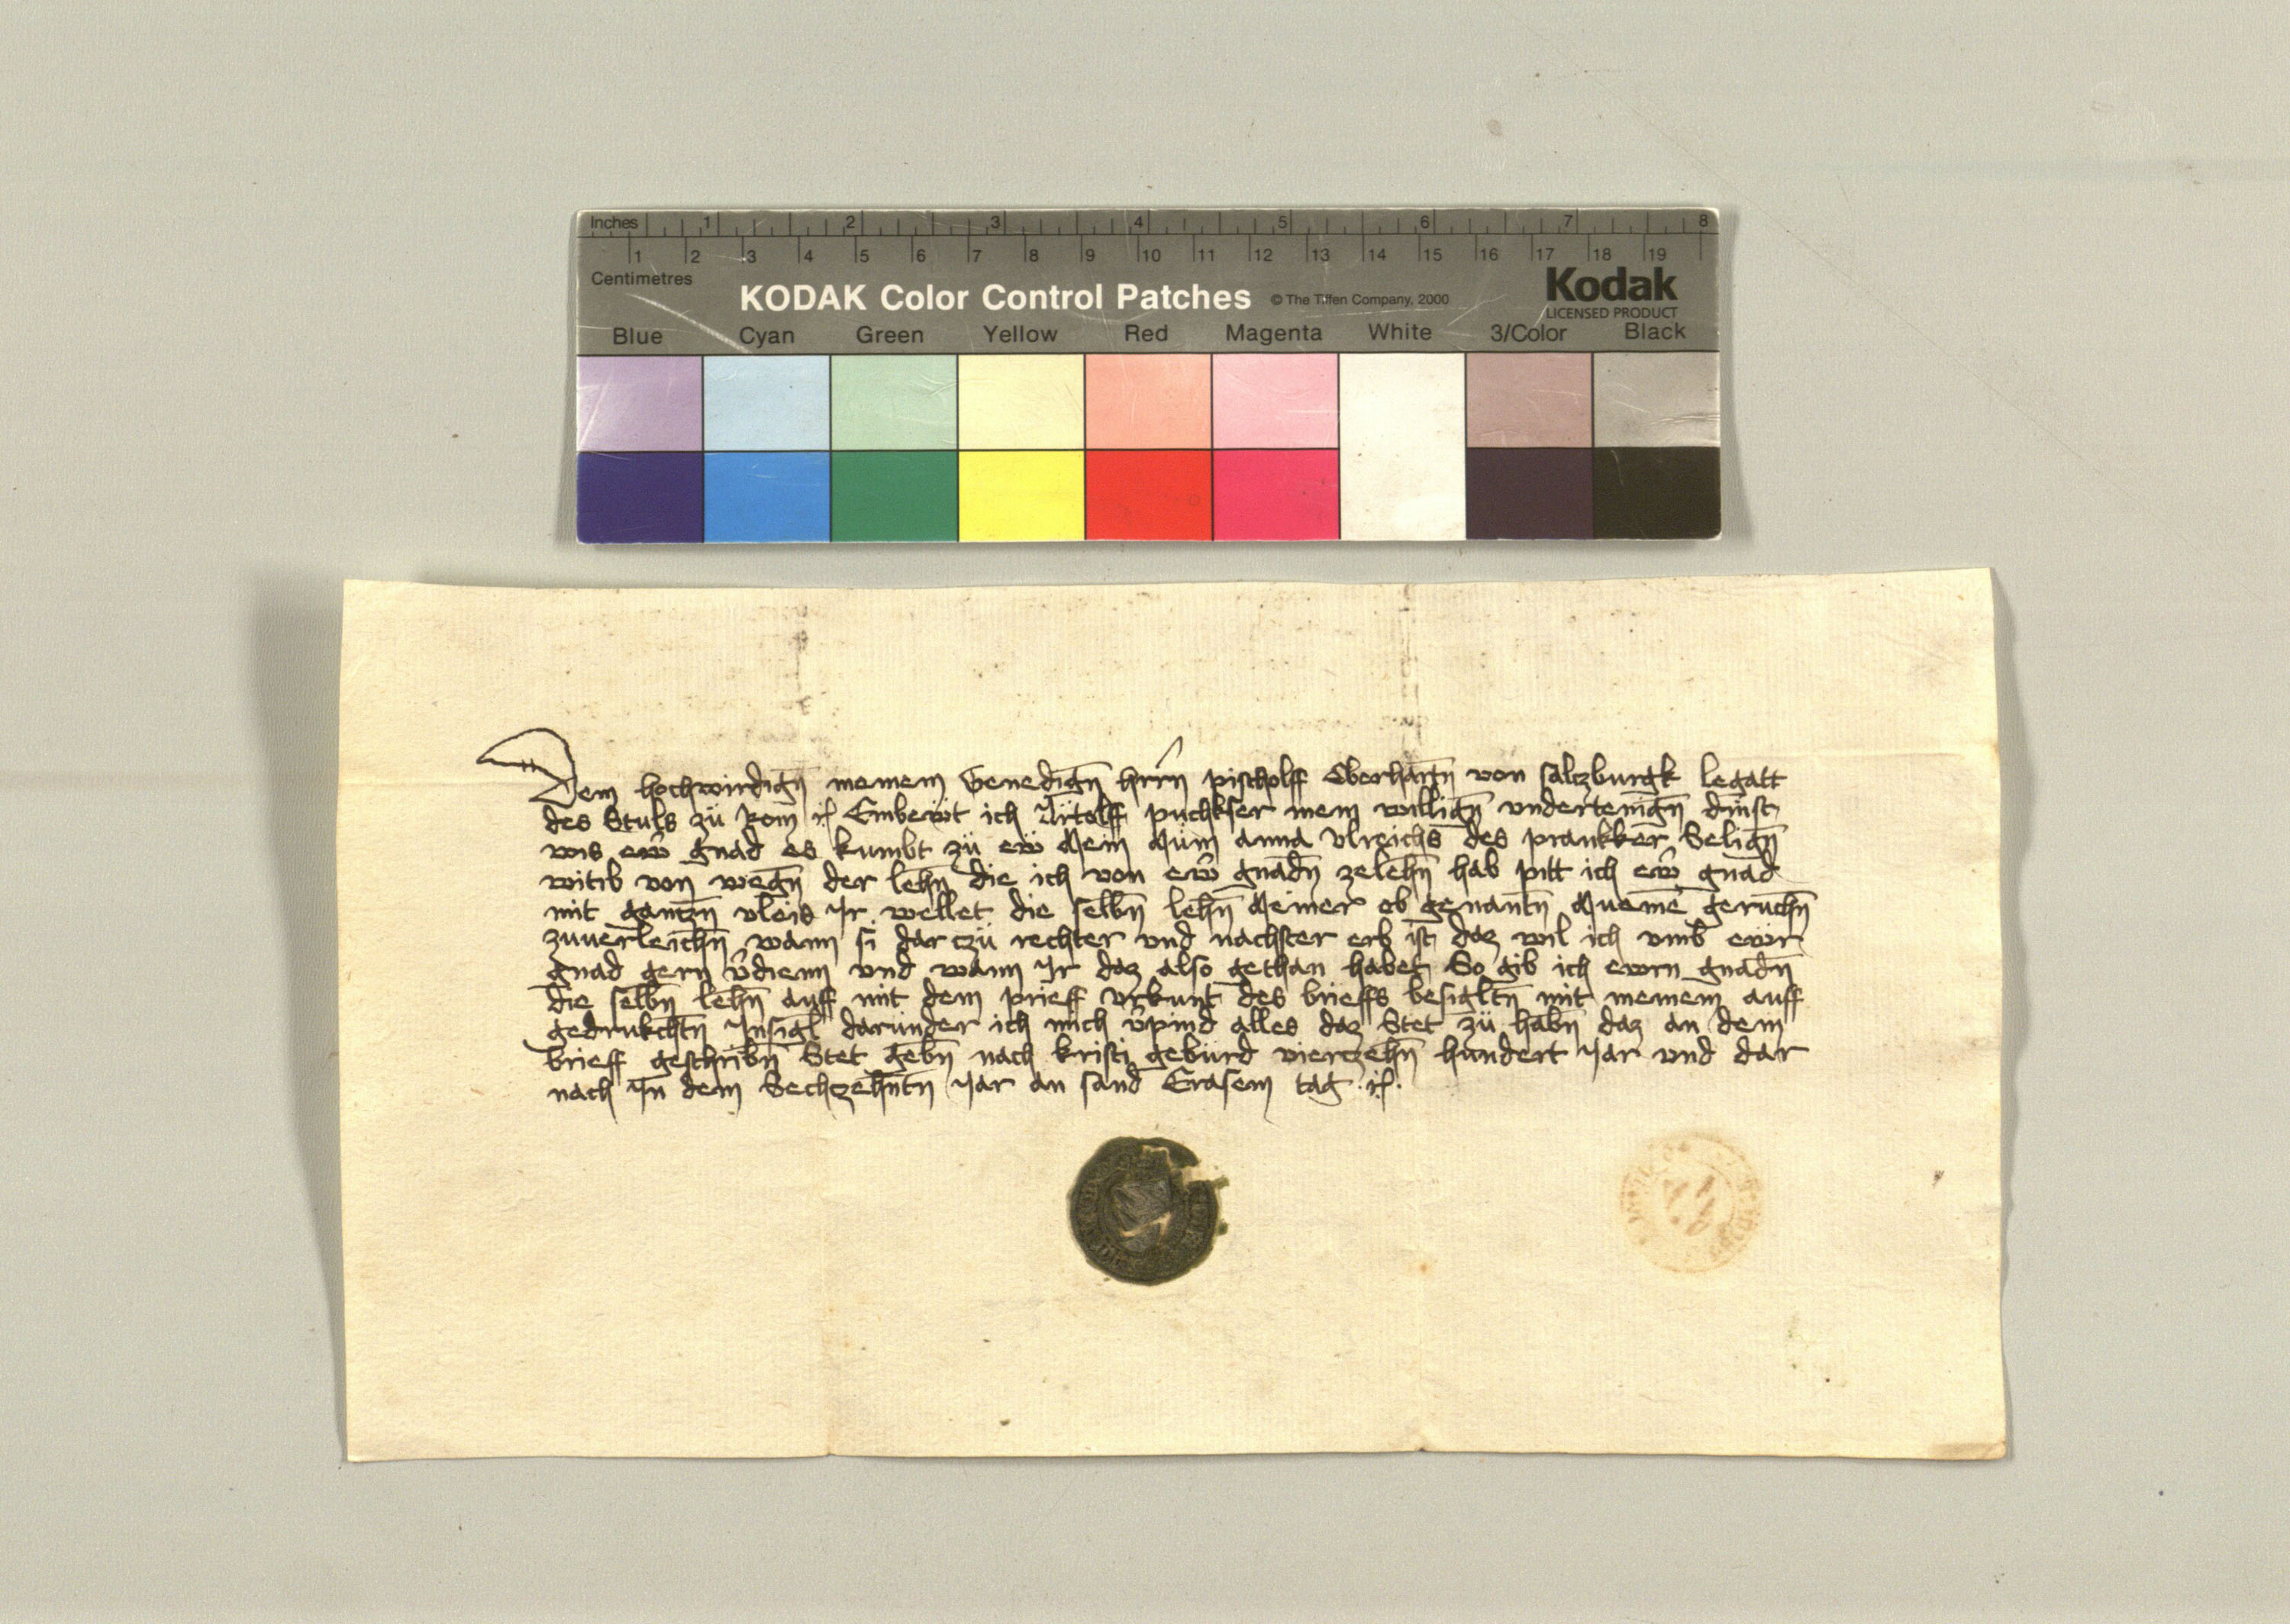 Inches 1 2 3 4 5 6 7 8
1 2 3 4 5 6 7 8 9 10 11 12 13 14 15 16 17 18 19
Centimetres
KODAK Color Control Patches © The Tiffen Company, 2000 Kodak
LICENSED PRODUCT
Blue Cyan Green Yellow Red Magenta White 3/Color Black
Dem hochwirdign̄ meinem Genedign̄ hrrn̄ pischolff Eberhartn̄ von salczburgk legatt
des Stuls zü Rom Embewt ich Örtolff puchkser mein willign̄ vndertenign̄ dinst
wis ew̄ gnad es kumbt zü eẅ Mein Müm anna Vlreichs des prankker Selign̄
witib von wegn̄ der lehn̄ die ich von ew̄ gnadn̄ zelehn̄ hab pitt ich ew̄ gnad
mit gantzn̄ vleis Ir wellet die selbn̄ lehn̄ Meiner ob genantn̄ Muemē geruchn̄
zuuerleichn̄ wann si dar czü rechter vnd nachster erb ist daz wil ich vmb ewr
gnad gern v̄dienn vnd wann Ir daz also gethan habet So gib ich ewrn gnadn̄
die selbn̄ lehn̄ auff mit dem prieff Vrkunt des brieffs besigltn̄ mit meinem auff
gedrukchtn̄ Insigl daründer ich mich v̄pind alles daz Stet zü habn̄ daz an dem
brieff geschribn̄ Stet gebn̄ nach kristi gebürd vierzehn̄ hundert Jar vnd dar
nach In dem Sechzehntn̄ Jar an sand Erasem tag